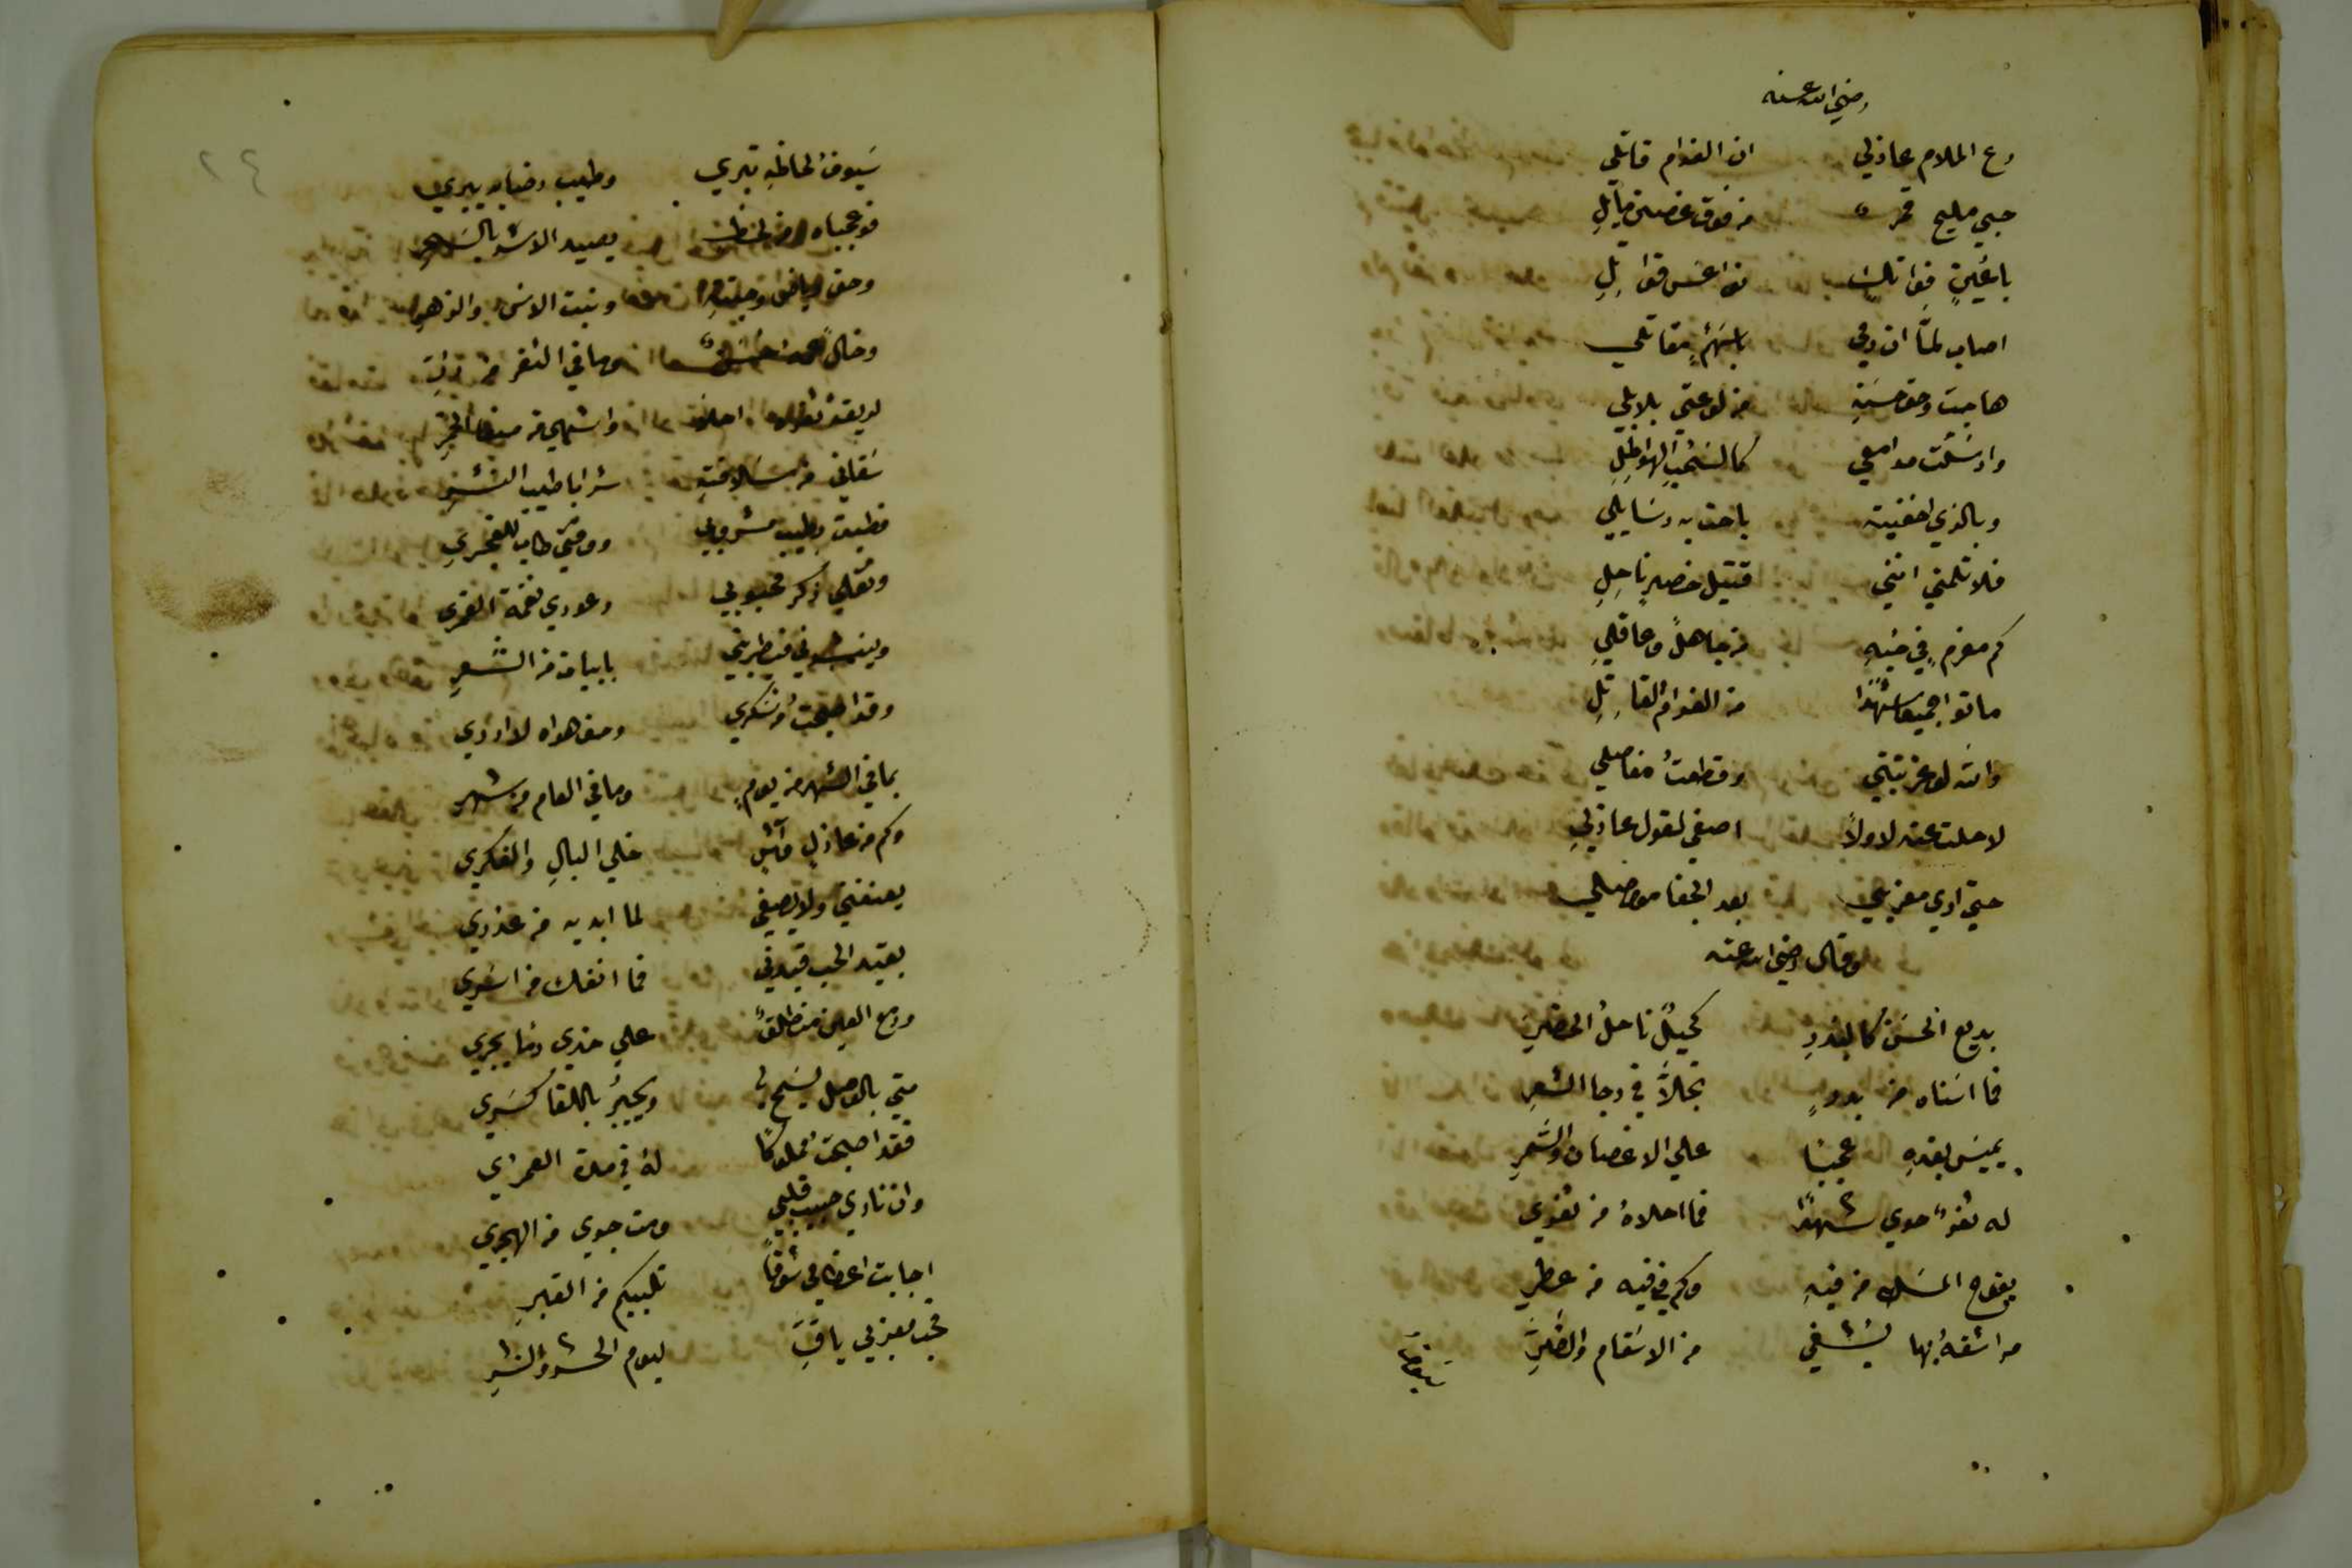 رضي الله عنه
دع الملام عاذلي ان الغرام قاتلي
حبي مليح قمر من فوق غصن مايلِ
باعينٍ فواتك نواعس قواتلِ
اصاب لمّا ان رمي باسهمٍ مقاتلي
هاجت وحق حسنهِ من لوعتي بلابلي
وارسَلت مدامعي كالسُحبِ الهواطلِ
وبالذي اخفيته باحت به رسَايلي
فلا تلمني انني قتيل خصرٍ ناحلِ
كم مغرمٍ في حبهِ من جاهلً وعاقلِ
ماتوا جميعا شهّدًا من الغرام القاتلِ
والله لو عذبتني وقطعتُ مفاصلي
لا حلت عنه لا ولاً اصغي لقول عاذلي
حتي اري معذبي بعد الجفا مواصلي
وقال رضي الله عنه
بديع الحسَن كالبدرِ كحيلً ناحلُ الخصرِ
فما اسَناه من بدرٍ تجلاَّ في دجا الشعرِ
يميسَ بقدهِ عجبًا علي الاغصان والسَمرِ
له ثغرً حوي شهدًا فما احلاهُ من ثغري
يفوح المسَك من فيهِ وكم في فيه من عطرِ
مراشفهُ بها يشفي من الاسَقام والضُرِّ
سَيوف
سَيوف لحاظهِ تبري وطيب رضابه يبري
فوعجباه من لحظ يصيد الاسَد بالسَحرِ
وحق رياض وجنتهِ ونبت الاس والزهرِ
وخال وما في الثغر من دررِ
لريقة ثغره احلا واشهي من الخمرِ
سَقاني من سَلافتهِ شرابا طيب النشرِ
فطبت بطيب مشروبي ووقتي طاب للفجري
ونقلي ذكر محبوبي وعودي نغمة القمري
وينشدني فيطربني بابيات من الشعرِ
وقد اصبحتُ من سَكري ومن هواه لا ادري
بما في الشهر من يومٍ وما في العام من شهرِ
وكم من عاذلٍ خلي البالِ والفكري
يعنفني ولا يصغي لما ابديه من عذري
بقيد الحب قيدني فما انفك من اسَري
ودمع العين منطلقً علي خدي دمًا يجري
متي بالوصل يسَمح لي ويجبرُ باللقا كسَري
فقد اصبحت مملوكًا لهُ في مدة العمري
وان نادي حبيب قلبي ومت جوي من الهجري
اجابت اعظمي شوقًا تلبيكم من القبرِ
فحب معذبي باقٍ ليوم الحشر والنشرِ